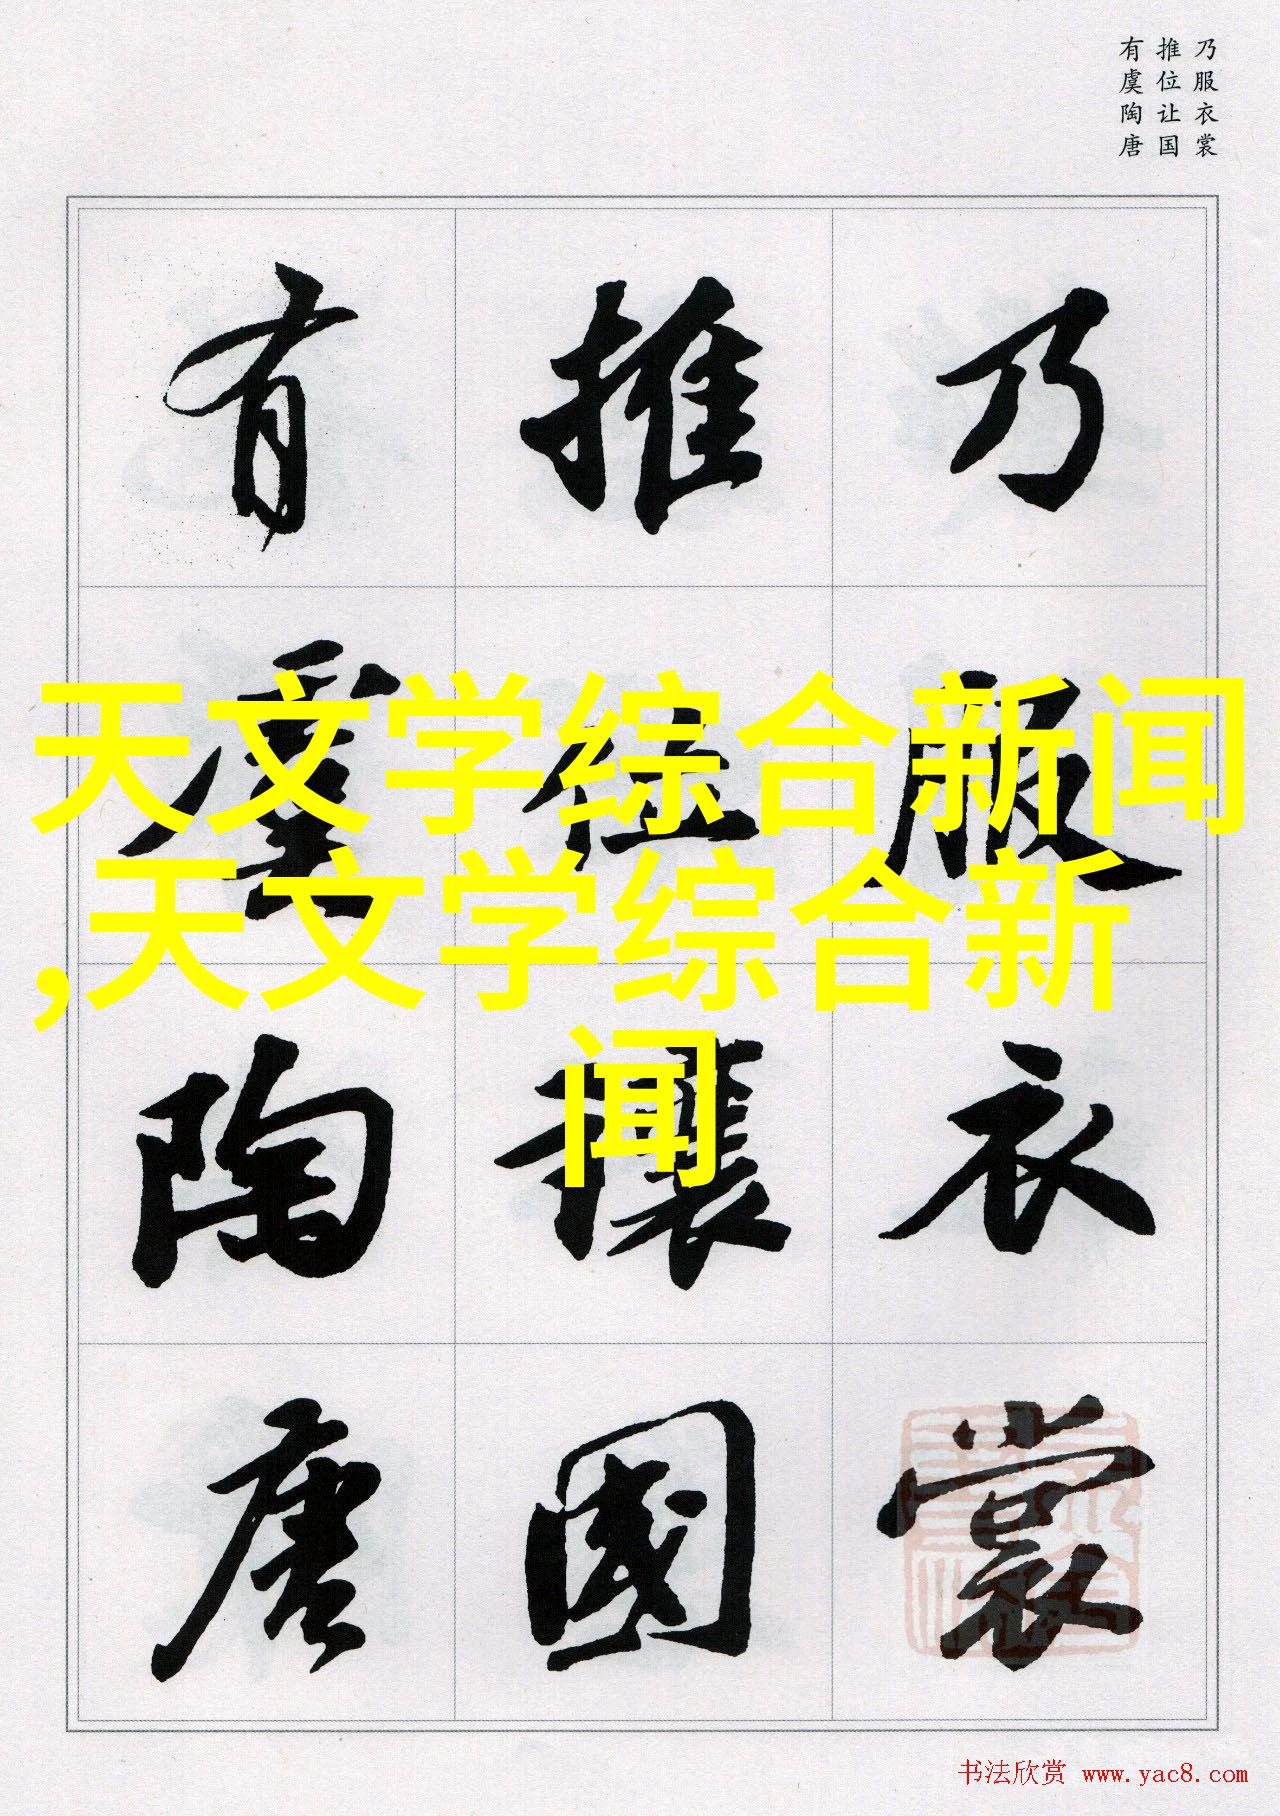 乃服衣裳
推位让国
有虞陶唐
乃服衣裳
推位讓國
有虞陶唐
天文学综合新闻
,天文学综合新
闻
书法欣赏 www.yac8.com